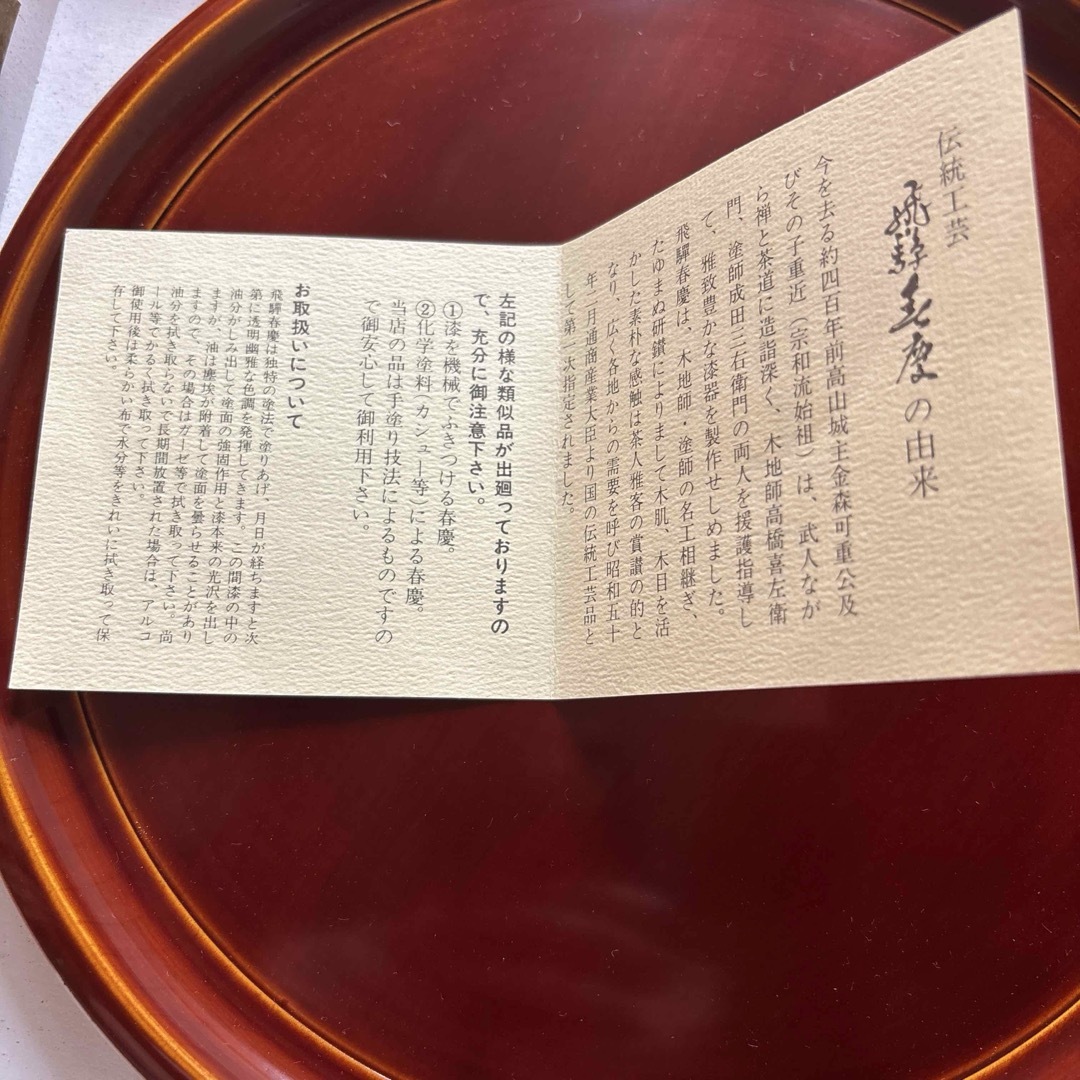 伝統工芸
飛騨春慶の由来
今を去る約四百年前高山城主金森可重公及
びその子重近（宗和流始祖）は、武人なが
ら禅と茶道に造詣深く、木地師高橋喜左衛
門、塗師成田三右衛門の両人を援護指導し
て、雅致豊かな漆器を製作せしめました。
飛驒春慶は、木地師・塗師の名工相継ぎ、
たゆまぬ研鑚によりまして木肌、木目を活
かした素朴な感触は茶人雅客の賞讃の的と
なり、広く各地からの需要を呼び昭和五十
年二月通商産業大臣より国の伝統工芸品と
して第一次指定されました。
左記の様な類似品が出廻っておりますの
で、充分に御注意下さい。
①漆を機械でふきつける春慶。
②化学塗料（カシュー等）による春慶。
当店の品は手塗り技法によるものですの
で御安心して御利用下さい。
お取扱いについて
飛驒春慶は独特の塗法で塗りあげ、月日が経ちますと次
第に透明幽雅な色調を発揮してきます。この間漆の中の
油分がしみ出して塗面の強固作用と漆本来の光沢を出し
ますが、油は塵埃が附着して塗面を曇らせることがあり
ますので、その場合はガーゼ等で拭き取って下さい。尚
油分を拭き取らないで長期間放置された場合は、アルコ
ール等でかるく拭き取って下さい。
御使用後は柔らかい布で水分等をきれいに拭き取って保
存して下さい。